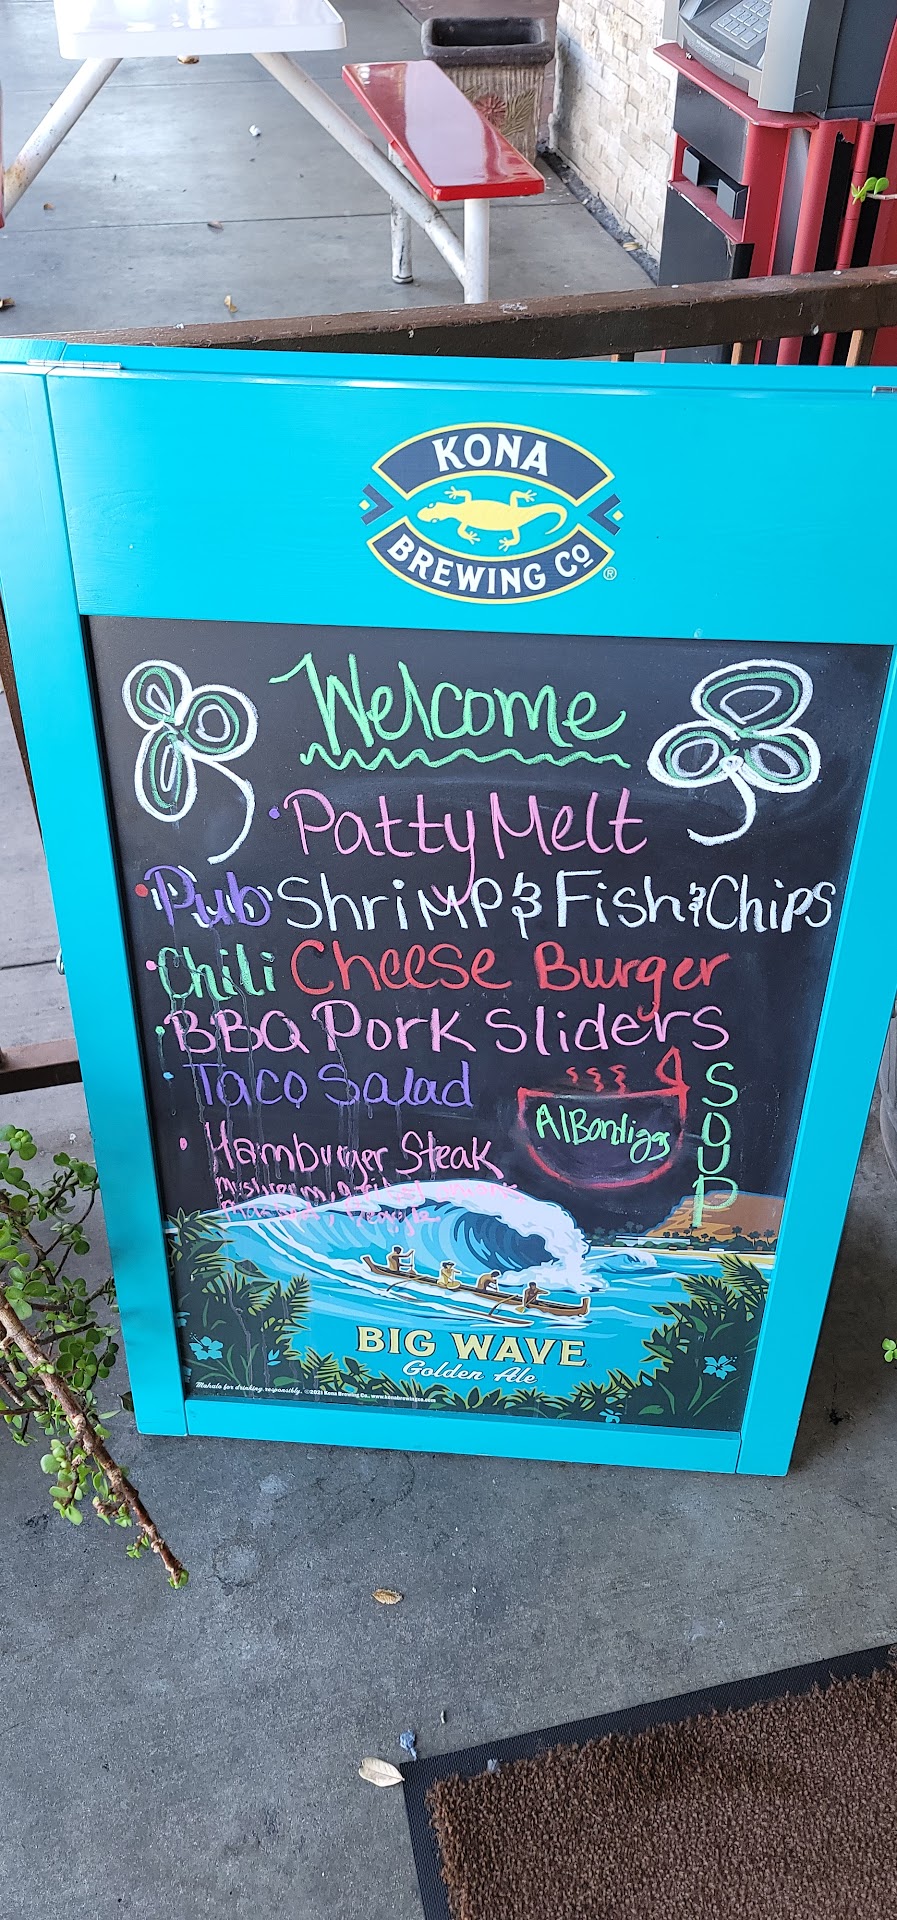 KONA
BREWING Co ®
Welcome
• Patty Melt
• Pub Shrimp & Fish & Chips
• Chili Cheese Burger
• BBQ Pork Sliders
• Taco Salad
AlBondigas
SOUP
• Hamburger Steak
mushroom, onions
BIG WAVE
Golden Ale
Mahalo for drinking responsibly. ©2021 Kona Brewing Co., www.konabrewingco.com